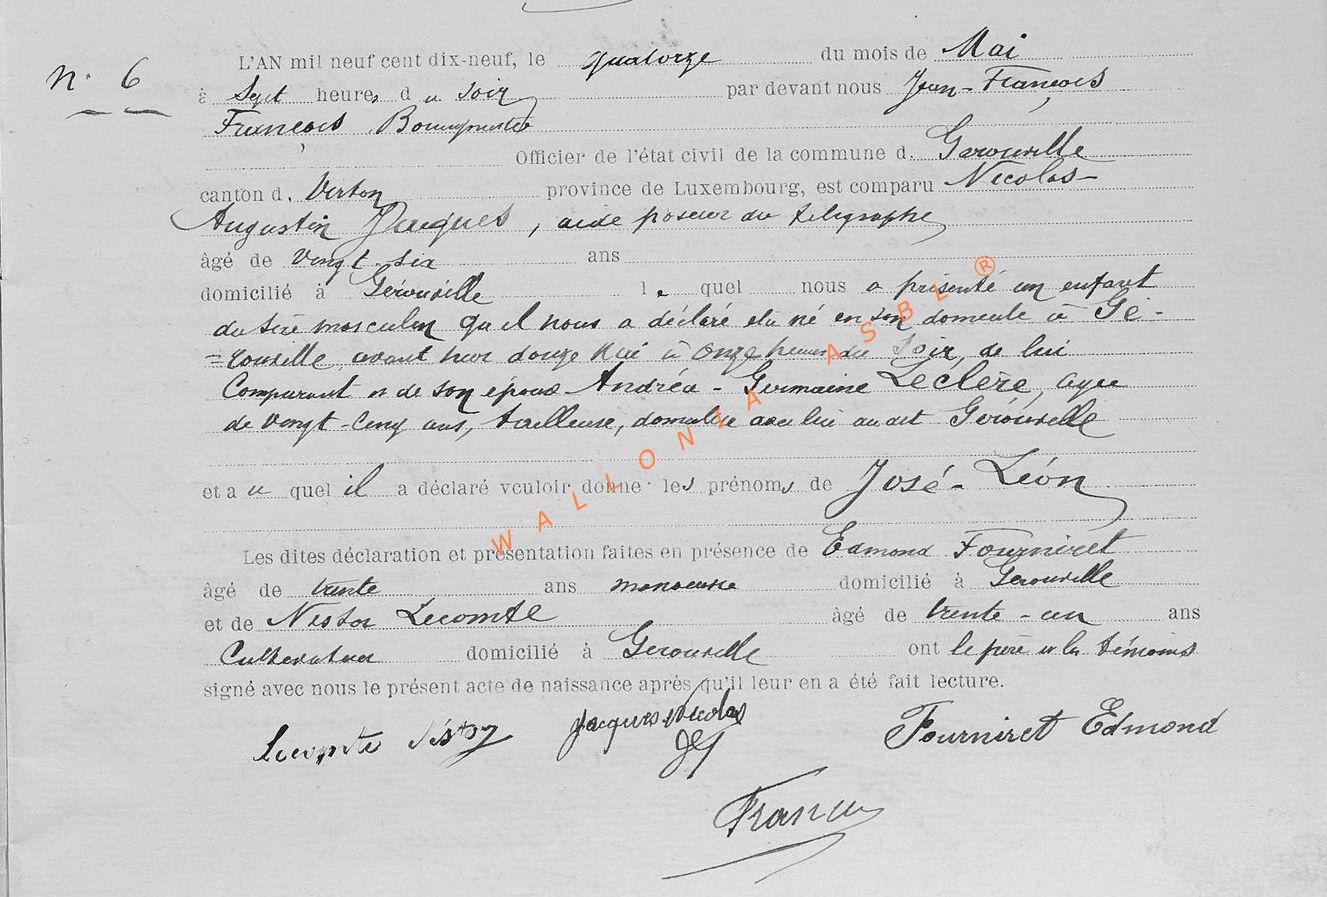 N° 6
L'AN mil neuf cent dix-neuf, le quatorze du mois de Mai
à Sept heures du soir par devant nous Jean-François
François Bourgmestre
Officier de l'état civil de la commune d. Gérouville
canton d. Virton province de Luxembourg, est comparu Nicolas-
Augustin Jacques, aide poseur du télégraphe
âgé de vingt-six ans
domicilié à Gérouville lequel nous a présenté un enfant
du sexe masculin qu'il nous a déclaré être né en son domicile à Gé-
=rouville, avant hier douze Mai à onze heures du soir, de lui
Comparant et de son épouse Andréa-Germaine Leclère, agée
de vingt-cinq ans, tailleuse, domiciliée avec lui audit Gérouville
et auquel il a déclaré vouloir donner les prénoms de José-Léon
Les dites déclaration et présentation faites en présence de Edmond Fourniret
âgé de trente ans manoeuvre domicilié à Gérouville
et de Nestor Lecomte âgé de trente-un ans
Cultivateur domicilié à Gérouville ont le père et les témoins
signé avec nous le présent acte de naissance après qu'il leur en a été fait lecture.
Lecomte Nestor Jacques Nicolas Fourniret Edmond
François
WALLONIA ASBL®